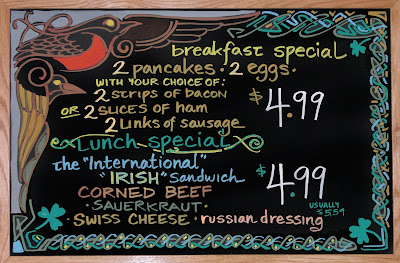 breakfast special
2 pancakes · 2 eggs ·
WITH YOUR CHOICE OF:
2 STRIPS OF BACON
OR 2 SLICES OF ham
2 Links of sausage
$4.99
Lunch special
The "International"
"IRISH" Sandwich
CORNED BEEF
· SAUERKRAUT ·
· SWISS CHEESE · russian dressing
$4.99
USUALLY
$5.59